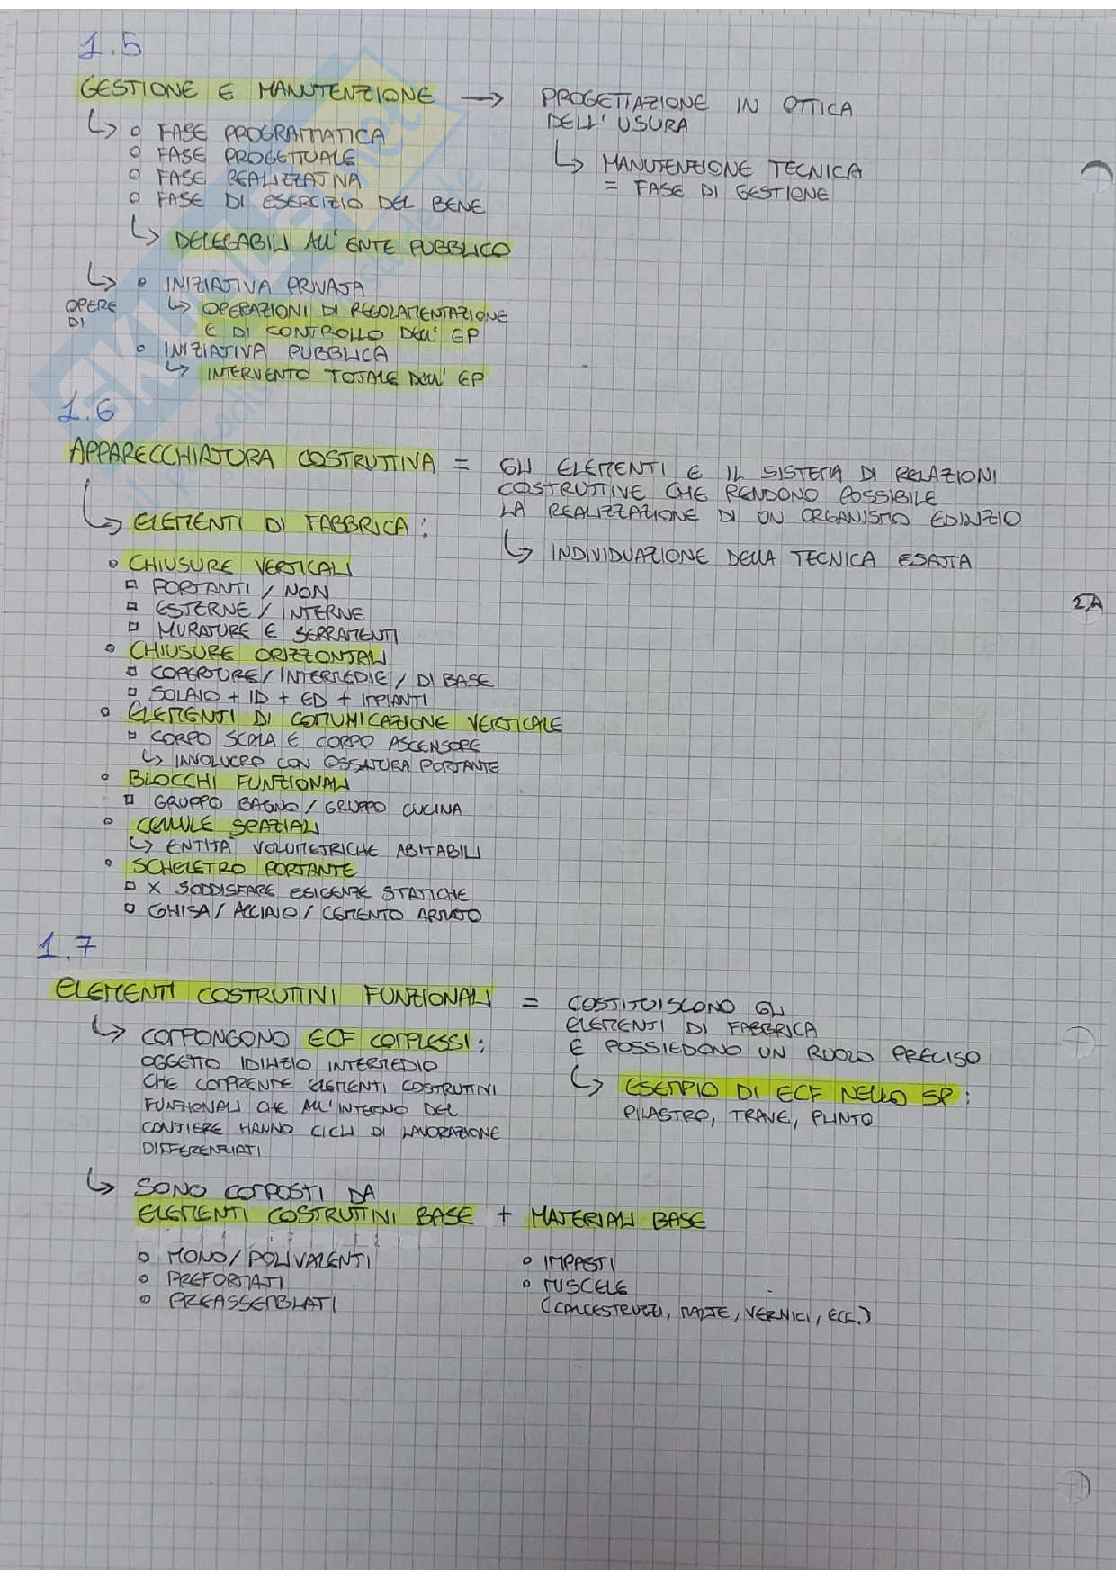 1.5
GESTIONE E MANUTENZIONE → PROGETTAZIONE IN OTTICA
DELL'USURA
↳ MANUTENZIONE TECNICA
= FASE DI GESTIONE
↳ ○ FASE PROGRAMMATICA
○ FASE PROGETTUALE
○ FASE REALIZZATIVA
○ FASE DI ESERCIZIO DEL BENE
↳ DELEGABILI ALL'ENTE PUBBLICO
↳ OPERE DI
○ INIZIATIVA PRIVATA
↳ OPERAZIONI DI REGOLAMENTAZIONE
E DI CONTROLLO DELL'EP
○ INIZIATIVA PUBBLICA
↳ INTERVENTO TOTALE DELL'EP
1.6
APPARECCHIATURA COSTRUTTIVA = GLI ELEMENTI E IL SISTEMA DI RELAZIONI
COSTRUTTIVE CHE RENDONO POSSIBILE
LA REALIZZAZIONE DI UN ORGANISMO EDILIZIO
↳ INDIVIDUAZIONE DELLA TECNICA ESATTA
↳ ELEMENTI DI FABBRICA:
○ CHIUSURE VERTICALI
□ PORTANTI / NON
□ ESTERNE / INTERNE
□ MURATURE E SERRAMENTI
○ CHIUSURE ORIZZONTALI
□ COPERTURE / INTERMEDIE / DI BASE
□ SOLAIO + ID + ED + IMPIANTI
○ ELEMENTI DI COMUNICAZIONE VERTICALE
□ CORPO SCALA E CORPO ASCENSORE
↳ INVOLUCRO CON OSSATURA PORTANTE
○ BLOCCHI FUNZIONALI
□ GRUPPO BAGNO / GRUPPO CUCINA
○ CELLULE SPAZIALI
↳ ENTITÀ VOLUMETRICHE ABITABILI
○ SCHELETRO PORTANTE
□ X SODDISFARE ESIGENZE STATICHE
□ GHISA / ACCIAIO / CEMENTO ARMATO
1.7
ELEMENTI COSTRUTTIVI FUNZIONALI = COSTITUISCONO GLI
ELEMENTI DI FABBRICA
E POSSIEDONO UN RUOLO PRECISO
↳ ESEMPIO DI ECF NELLO SP:
PILASTRO, TRAVE, PLINTO
↳ COMPONGONO ECF COMPLESSI:
OGGETTO EDILIZIO INTERMEDIO
CHE COMPRENDE ELEMENTI COSTRUTTIVI
FUNZIONALI CHE ALL'INTERNO DEL
CANTIERE HANNO CICLI DI LAVORAZIONE
DIFFERENZIATI
↳ SONO COMPOSTI DA
ELEMENTI COSTRUTTIVI BASE + MATERIALI BASE
○ MONO/POLIVALENTI
○ PREFORMATI
○ PREASSEMBLATI
○ IMPASTI
○ MISCELE
(CALCESTRUZZI, MALTE, VERNICI, ECC.)